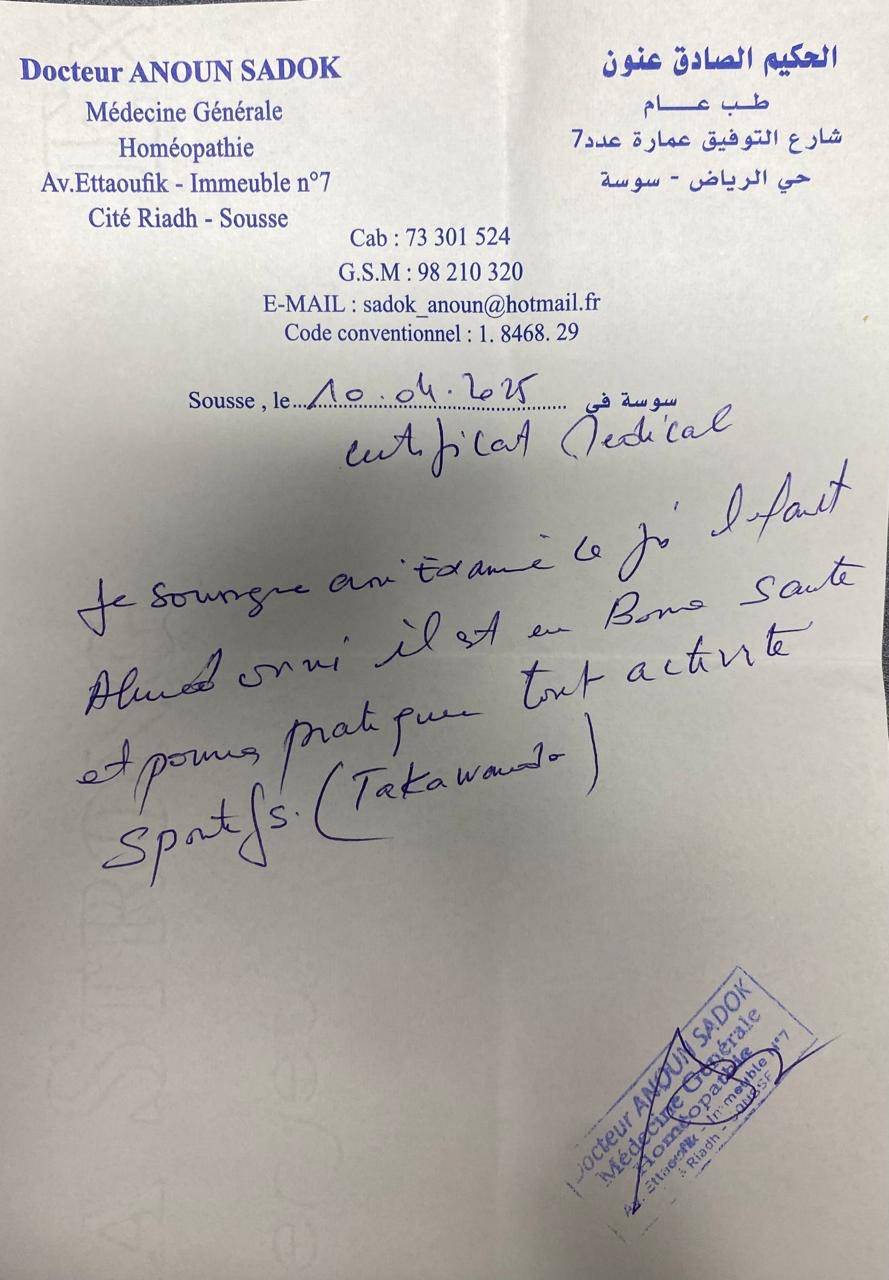 Docteur ANOUN SADOK
Médecine Générale
Homéopathie
Av.Ettaoufik - Immeuble n°7
Cité Riadh - Sousse
الحكيم الصادق عنون
طب عام
شارع التوفيق عمارة عدد7
حي الرياض - سوسة
Cab : 73 301 524
G.S.M : 98 210 320
E-MAIL : sadok_anoun@hotmail.fr
Code conventionnel : 1. 8468. 29
Sousse , le 10.04.2025 سوسة في
certificat Medical
Je examiné ce l'enfant
Ahmed il est en Bonne Sante
et pratiquer tout activite
Sportifs. (Takawondo)
Docteur ANOUN SADOK
Médecine Générale
Homéopathie
Av. Ettaoufik - Immeuble N°7
Riadh - SOUSSE